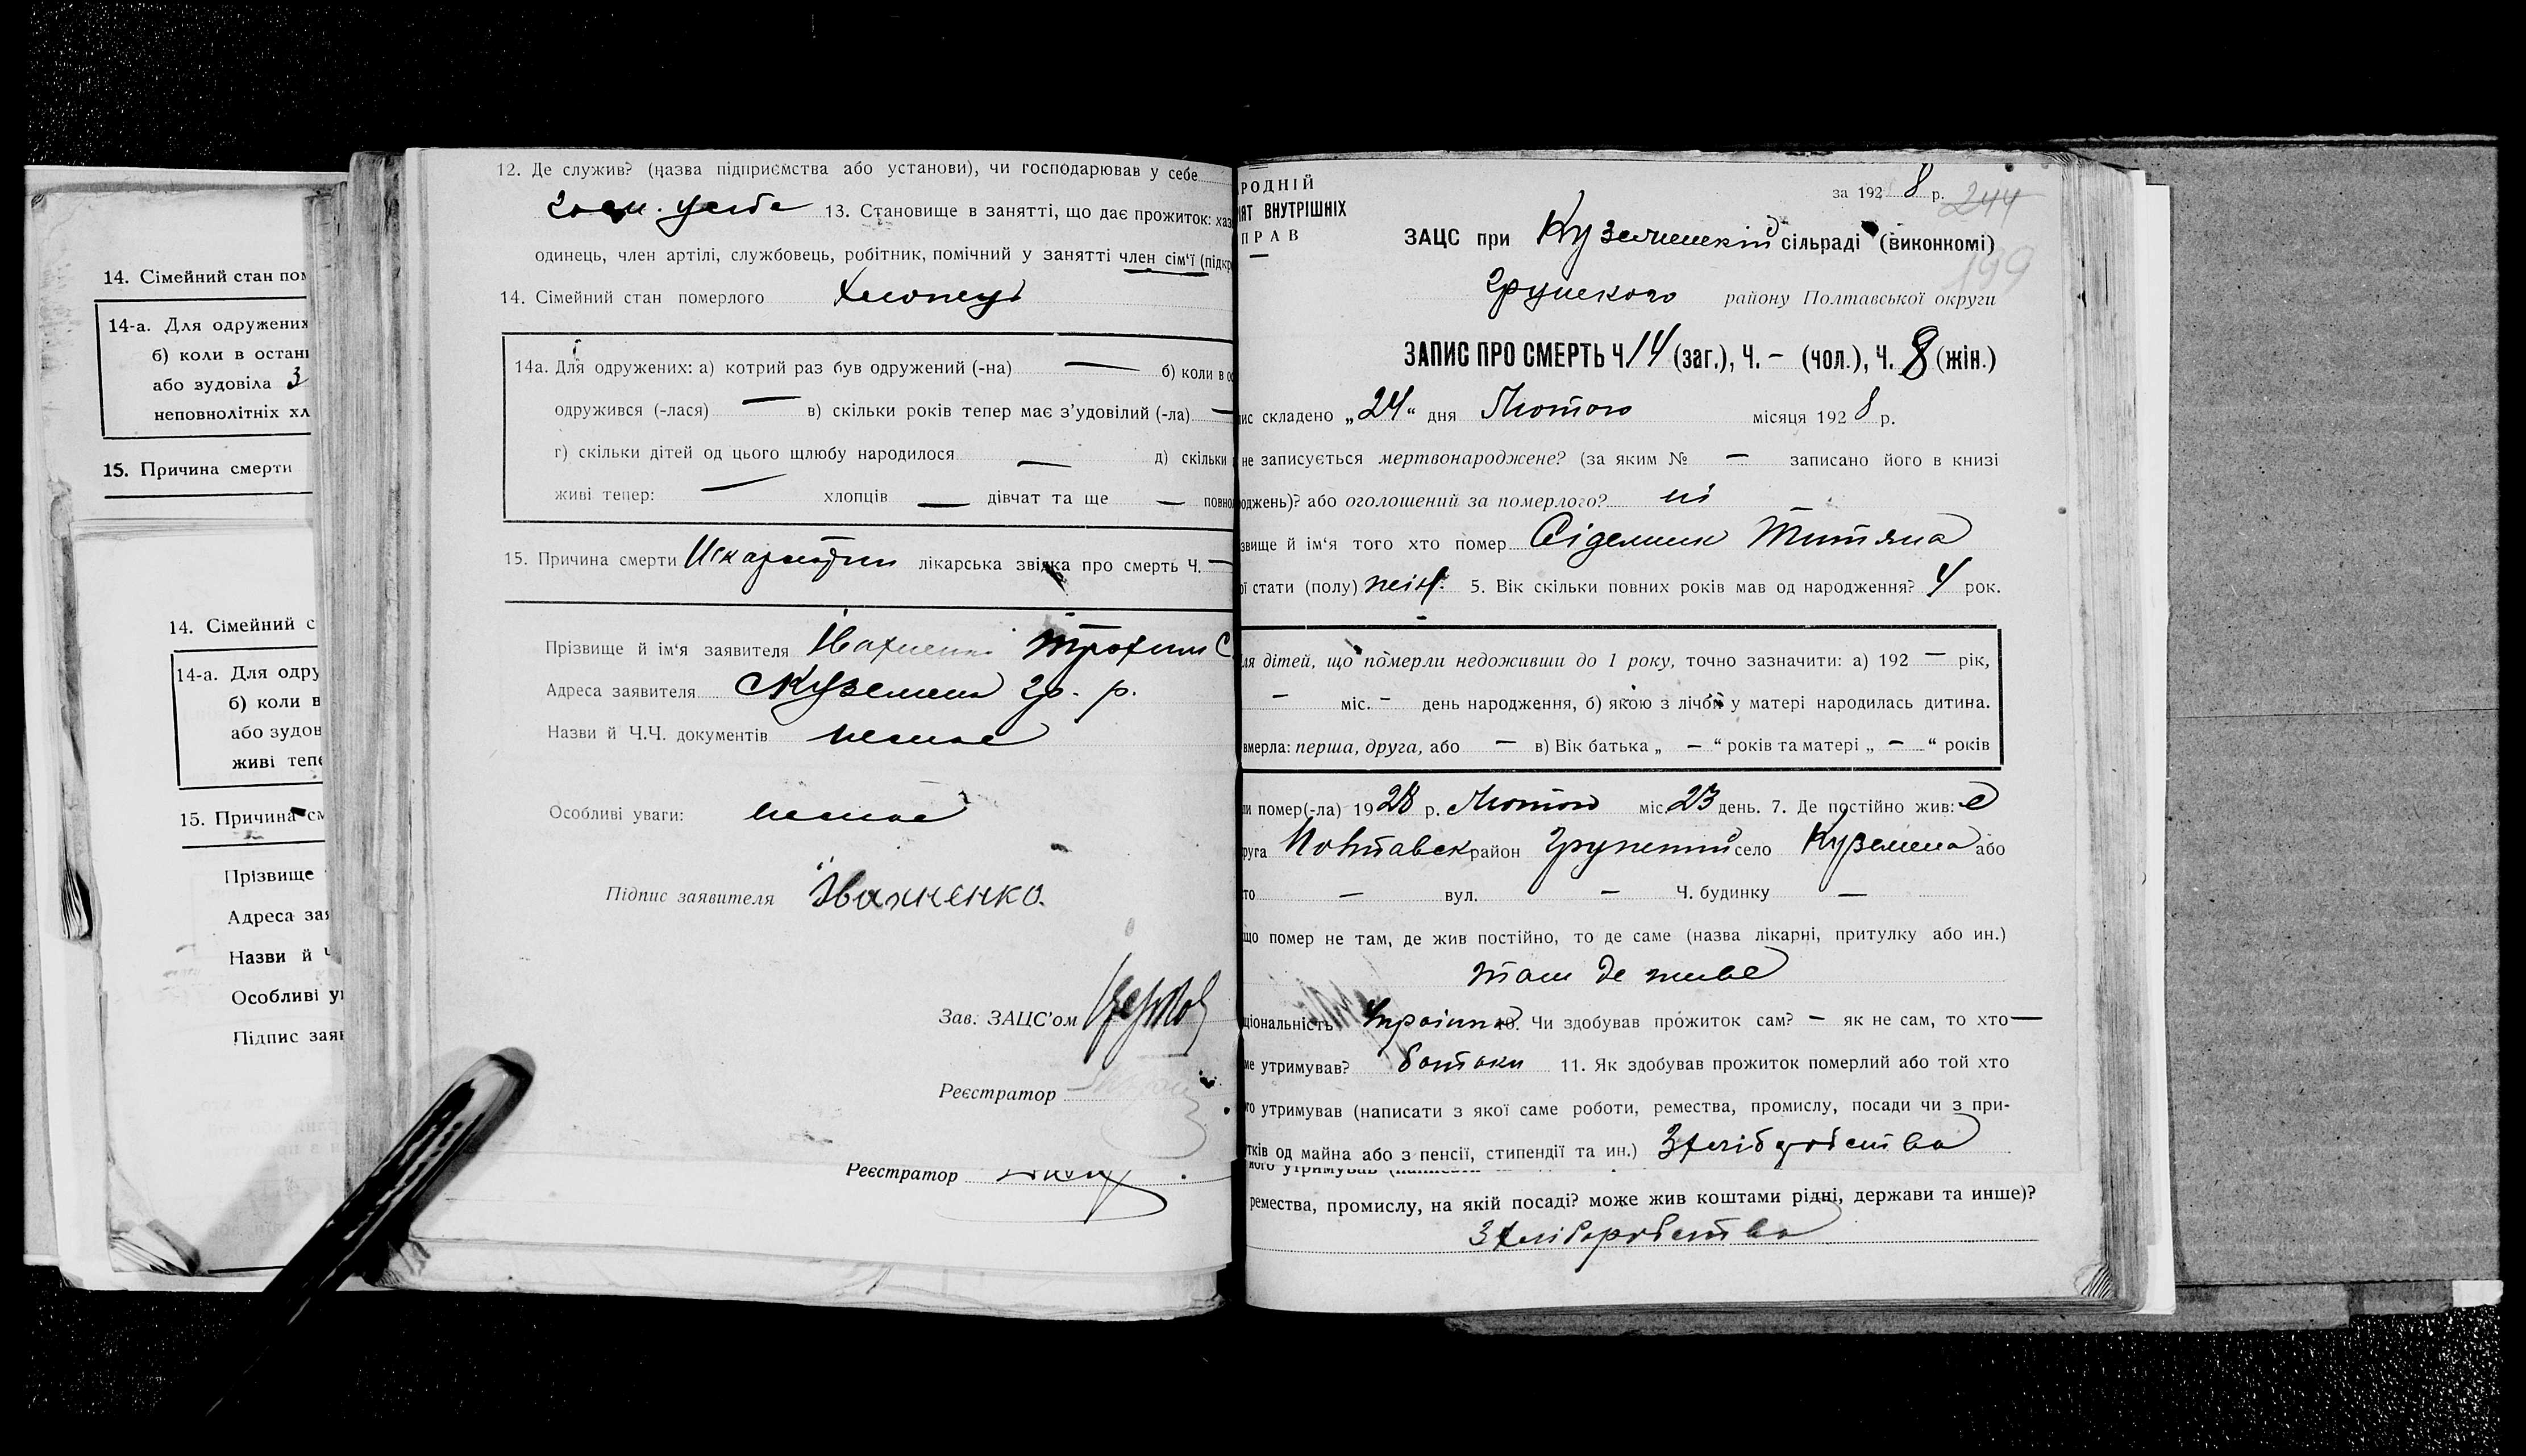 14. Сімейний стан пом
14-а. Для одружених
б) коли в остан
або зудовіла 3
неповнолітніх хл
15. Причина смерти
14. Сімейний с
14-а. Для одру
б) коли в
або зудов
живі тепе
15. Причина см
Прізвище
Адреса зая
Назви й Ч
Особливі ув
Підпис заяв
12. Де служив? (назва підприємства або установи), чи господарював у себе
госп. у себе 13. Становище в занятті, що дає прожиток: хаз
одинець, член артілі, службовець, робітник, помічний у занятті член сім‘ї (підкр
14. Сімейний стан померлого
14а. Для одружених: а) котрий раз був одружений (-на) — б) коли в ос
одружився (-лася) — в) скільки років тепер має з’удовілий (-ла) —
г) скільки дітей од цього щлюбу народилося — д) скільки
живі тепер: — хлопців — дівчат та ще — повно
15. Причина смерти лікарська звідка про смерть Ч. —
Прізвище й ім‘я заявителя Івахненко Трохим С
Адреса заявителя с Куземен гр. р.
Назви й Ч.Ч. документів немає
Особливі уваги: немає
Підпис заявителя Івахненко.
Зав. ЗАЦС’ом
Реєстратор
Реєстратор
РОДНІЙ
ІЯТ ВНУТРІШНІХ
ПРАВ
за 1928 р. 244
ЗАЦС при Куземенській сільраді (виконкомі)
199
Грунського району Полтавської округи
ЗАПИС ПРО СМЕРТЬ Ч. 14 (заг.), Ч. - (чол.), Ч. 8 (жін.)
ис складено „24“ дня Лютого місяця 1928 р.
не записується мертвонароджене? (за яким № — записано його в книзі
роджень)? або оголошений за померлого? ні
звище й ім‘я того хто помер Сіделник Титяна
ої стати (полу) жін. 5. Вік скільки повних років мав од народження? 4 рок.
ля дітей, що померли недоживши до 1 року, точно зазначити: а) 192 — рік,
— міс. — день народження, б) якою з лічби у матері народилась дитина.
вмерла: перша, друга, або — в) Вік батька „ — “ років та матері „ — “ років
и помер(-ла) 1928 р. Лютого міс. 23 день. 7. Де постійно жив: с
руга Полтавськ район Грунський село Куземен або
то — вул. — Ч. будинку —
що помер не там, де жив постійно, то де саме (назва лікарні, притулку або ин.)
там де живе
ціональність Україн 10. Чи здобував прожиток сам? — як не сам, то хто —
ме утримував? батьки 11. Як здобував прожиток померлий або той хто
го утримував (написати з якої саме роботи, ремества, промислу, посади чи з при-
тків од майна або з пенсії, стипендії та ин.) З хліборобства
ного утримував
ремества, промислу, на якій посаді? може жив коштами рідні, держави та инше)?
З хліборобства